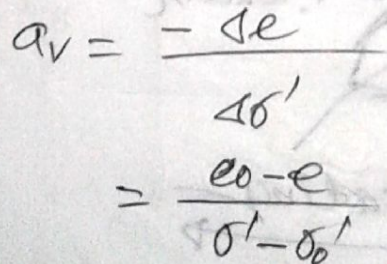 av = -Δe / Δσ'
= e0-e / σ'-σ0'